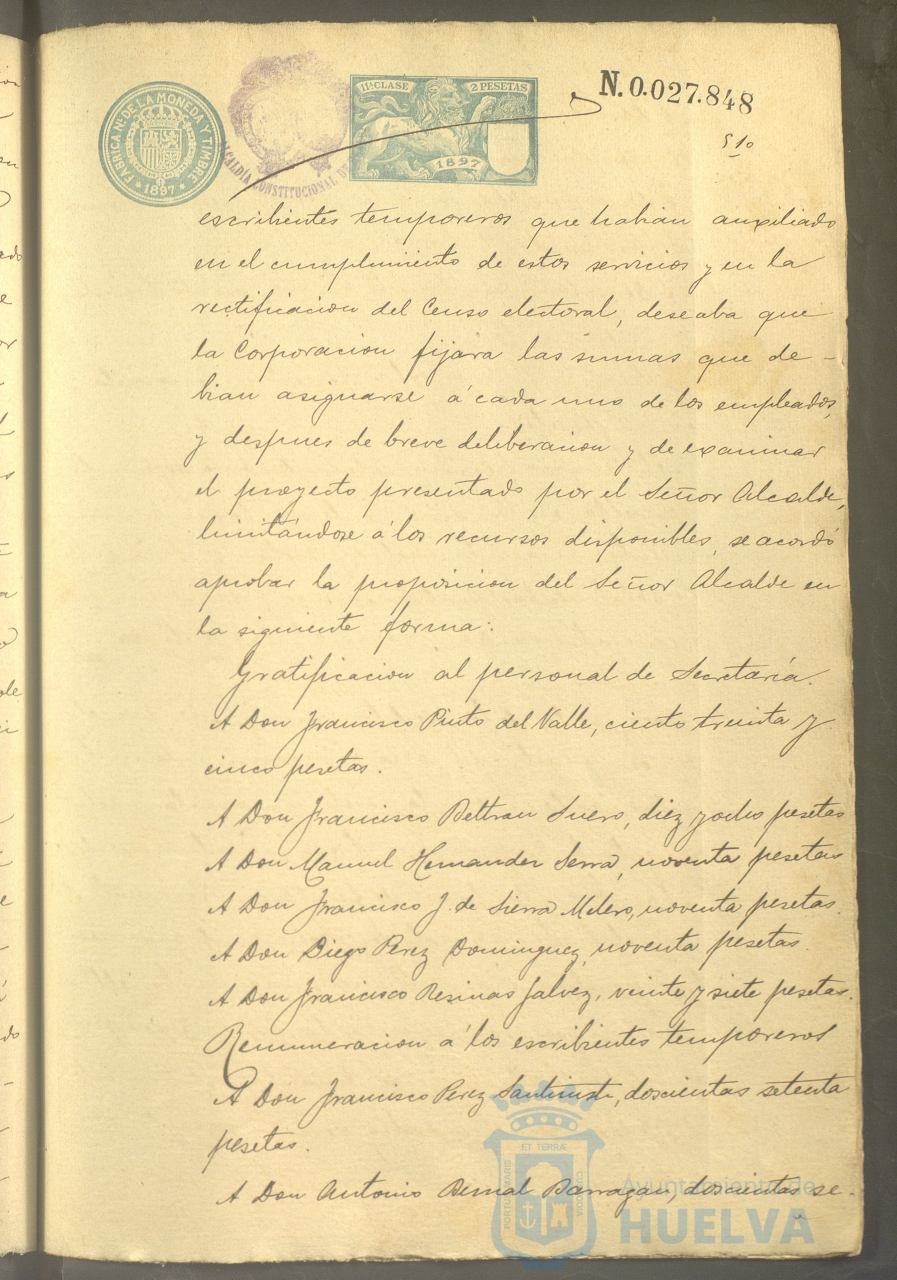 FABRICA Nᴸ DE LA MONEDA Y TIMBRE
* 1897 *
ALCALDÍA CONSTITUCIONAL DE
11ª CLASE 2 PESETAS
1897
N.0.027.848
510
escribientes temporeros que habian auxiliado
en el cumplimiento de estos servicios y en la
rectificacion del Censo electoral, deseaba que
la Corporacion fijára las sumas que de-
bian asignarse á cada uno de los empleados,
y despues de breve deliberacion y de examinar
el proyecto presentado por el Señor Alcalde,
limitándose á los recursos disponibles, se acordó
aprobar la proposicion del Señor Alcalde en
la siguiente forma:
Gratificacion al personal de Secretaría.
A Don Francisco Pinto del Valle, ciento treinta y
cinco pesetas.
A Don Francisco Beltran Suero, diez y ocho pesetas
A Don Manuel Hernandez Serra, noventa pesetas
A Don Francisco J. de Sierra Melero, noventa pesetas.
A Don Diego Perez Dominguez, noventa pesetas.
A Don Francisco Resinas Galvez, veinte y siete pesetas.
Remuneracion á los escribientes temporeros
A Don Francisco Perez Santiuste, doscientas setenta
pesetas.
A Don Antonio Bernal Barragan, doscientas se-
ET TERRÆ
PORTUS MARIS
CUSTODIA
Ayuntamiento de
HUELVA